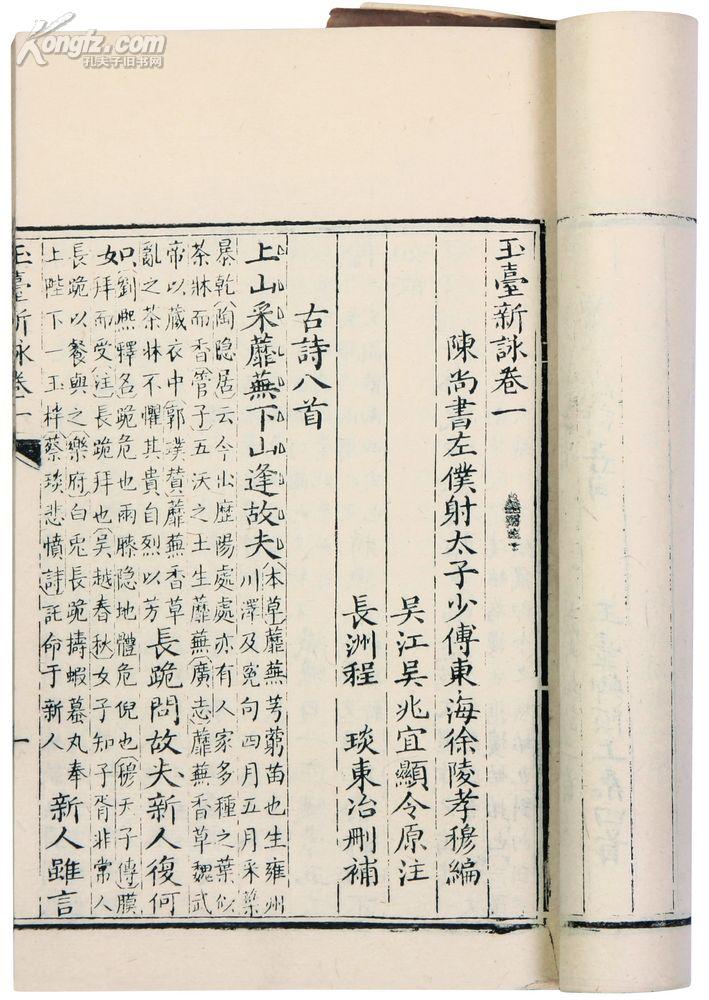 Kongfz.com
孔夫子旧书网
玉臺新詠卷一
陳尚書左僕射太子少傅東海徐陵孝穆編
吴江吴兆宜顯令原注
長洲程 琰東冶刪補
古詩八首
上山采蘼蕪下山逢故夫本草蘼蕪芎藭苗也生雍州
川澤及寃句四月五月采葉
暴乾陶隐居云今出歷陽處處亦有人家多種之葉似
茶牀而香管子五沃之土生蘼蕪廣志蘼蕪香草魏武
帝以藏衣中郭璞贊蘼蕪香草
亂之茶牀不懼其貴自烈以芳長跪問故夫新人復何
只劉熙釋名跪危也兩膝隐地體危倪也穆天子傳膜
女拜而受注長跪拜也吴越春秋女子知子胥非常人
長跪以餐與之樂府白兎長跪擣蝦蟇丸奉
上陛下一玉柈蔡琰悲憤詩託命于新人新人雖言
玉臺新詠卷一
一